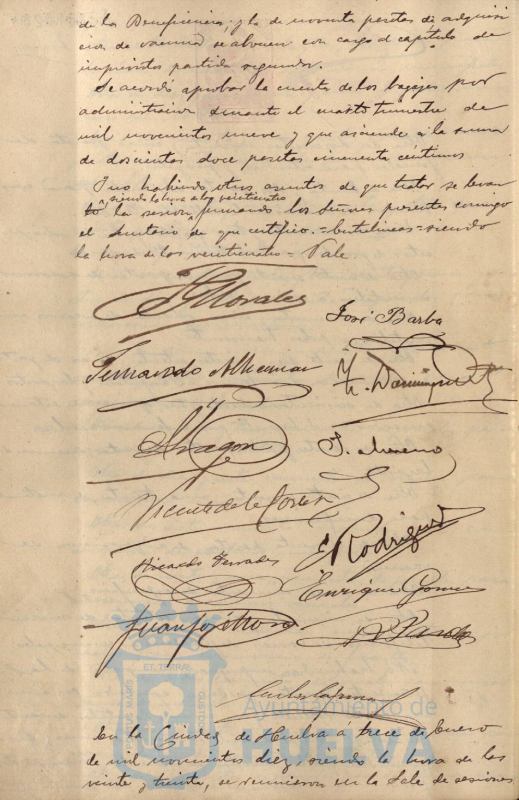 de la Beneficencia, y la de noventa pesetas de adquisi
cion de vacuna se abonen con cargo al capitulo de
imprevistos partida segunda.
Se acordó aprobar la cuenta de los bagajes por
administracion durante el cuarto trimestre de
mil novecientos nueve y que asciende á la suma
de doscientas doce pesetas cincuenta céntimos
Y no habiendo otros asuntos de que tratar se levan
siendo la hora de las veinticuatro
tó la sesion, firmando los Señores presentes conmigo
el Secretario de que certifico. = Entrelineas = siendo
la hora de las veinticuatro = Vale
Morales
José Barba
Fernando
F. Dominguez
Aragon
J. Moreno
Vicente de la Corte
E Rodriguez
Ricardo Terrades
Enrique Gomez
Juan José Mora
ET. TERRAE.
Ayuntamiento de
HUELVA
En la Ciudad de Huelva á trece de Enero
de mil novecientos diez, siendo la hora de las
veinte y treinta, se reunieron en la Sala de sesiones